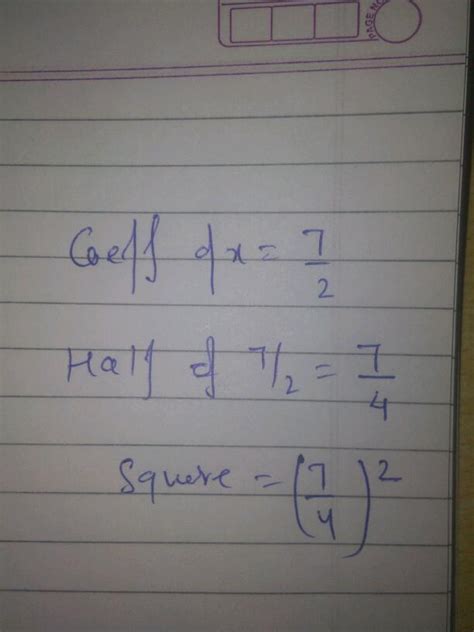 PAGE NO
Coeff of x = 7/2
Half of 7/2 = 7/4
Square = (7/4)²